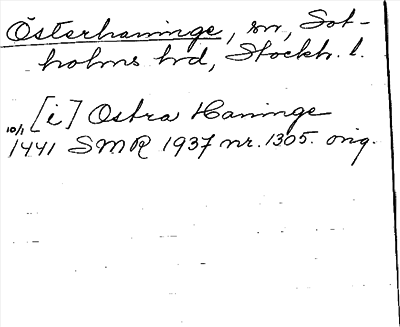 Österhaninge, sn, Sot-
holms hd, Stockh. l.
[i] Ostra Haninge
10/1 1441 SMR 1937 nr. 1305. orig.